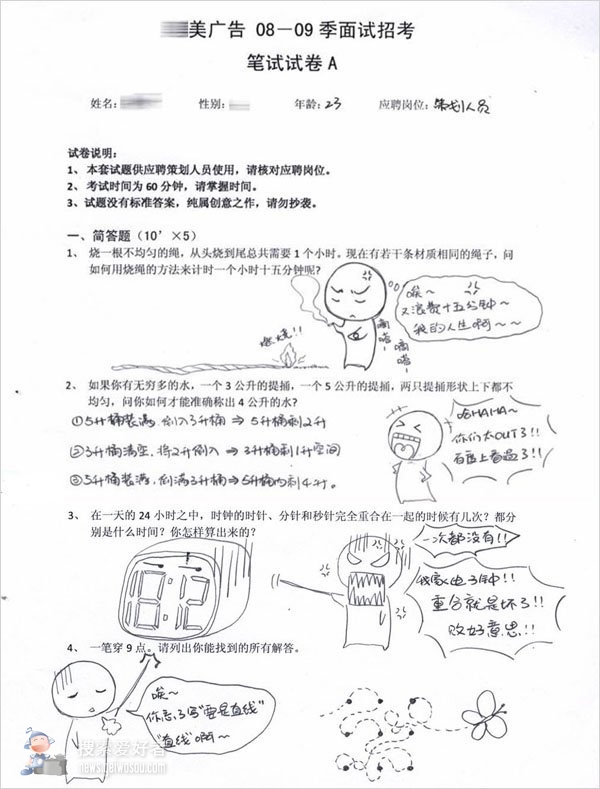 美广告 08－09 季面试招考
笔试试卷 A
姓名： 性别： 年龄：23 应聘岗位：策划人员
试卷说明：
1、 本套试题供应聘策划人员使用，请核对应聘岗位。
2、 考试时间为 60 分钟，请掌握时间。
3、试题没有标准答案，纯属创意之作，请勿抄袭。
一、简答题（10’×5）
1、 烧一根不均匀的绳，从头烧到尾总共需要 1 个小时。现在有若干条材质相同的绳子，问
如何用烧绳的方法来计时一个小时十五分钟呢？
唉～
又浪费十五分钟～
我的人生啊～～
燃烧!!
嘀嗒～
嘀嗒～
2、 如果你有无穷多的水，一个 3 公升的提捅，一个 5 公升的提捅，两只提捅形状上下都不
均匀，问你如何才能准确称出 4 公升的水？
①5升桶装满 倒入3升桶 ⇒ 5升桶剩2升
②3升桶清空，将2升倒入 ⇒ 3升桶剩1升空间
③5升桶装满，倒满3升桶⇒5升桶内剩4升。
哈HAHA～
你们太OUT了!!
百度上看過了!!
3、 在一天的 24 小时之中，时钟的时针、分针和秒针完全重合在一起的时候有几次？都分
别是什么时间？你怎样算出来的？
一次都没有!!
我家电子钟!!
重合就是坏了!!
败好意思!!
18:12
4、 一笔穿 9 点。请列出你能找到的所有解答。
唉～
你忘了写“要是直线”
“直线”啊～
搜索爱好者
news.peiwosou.com